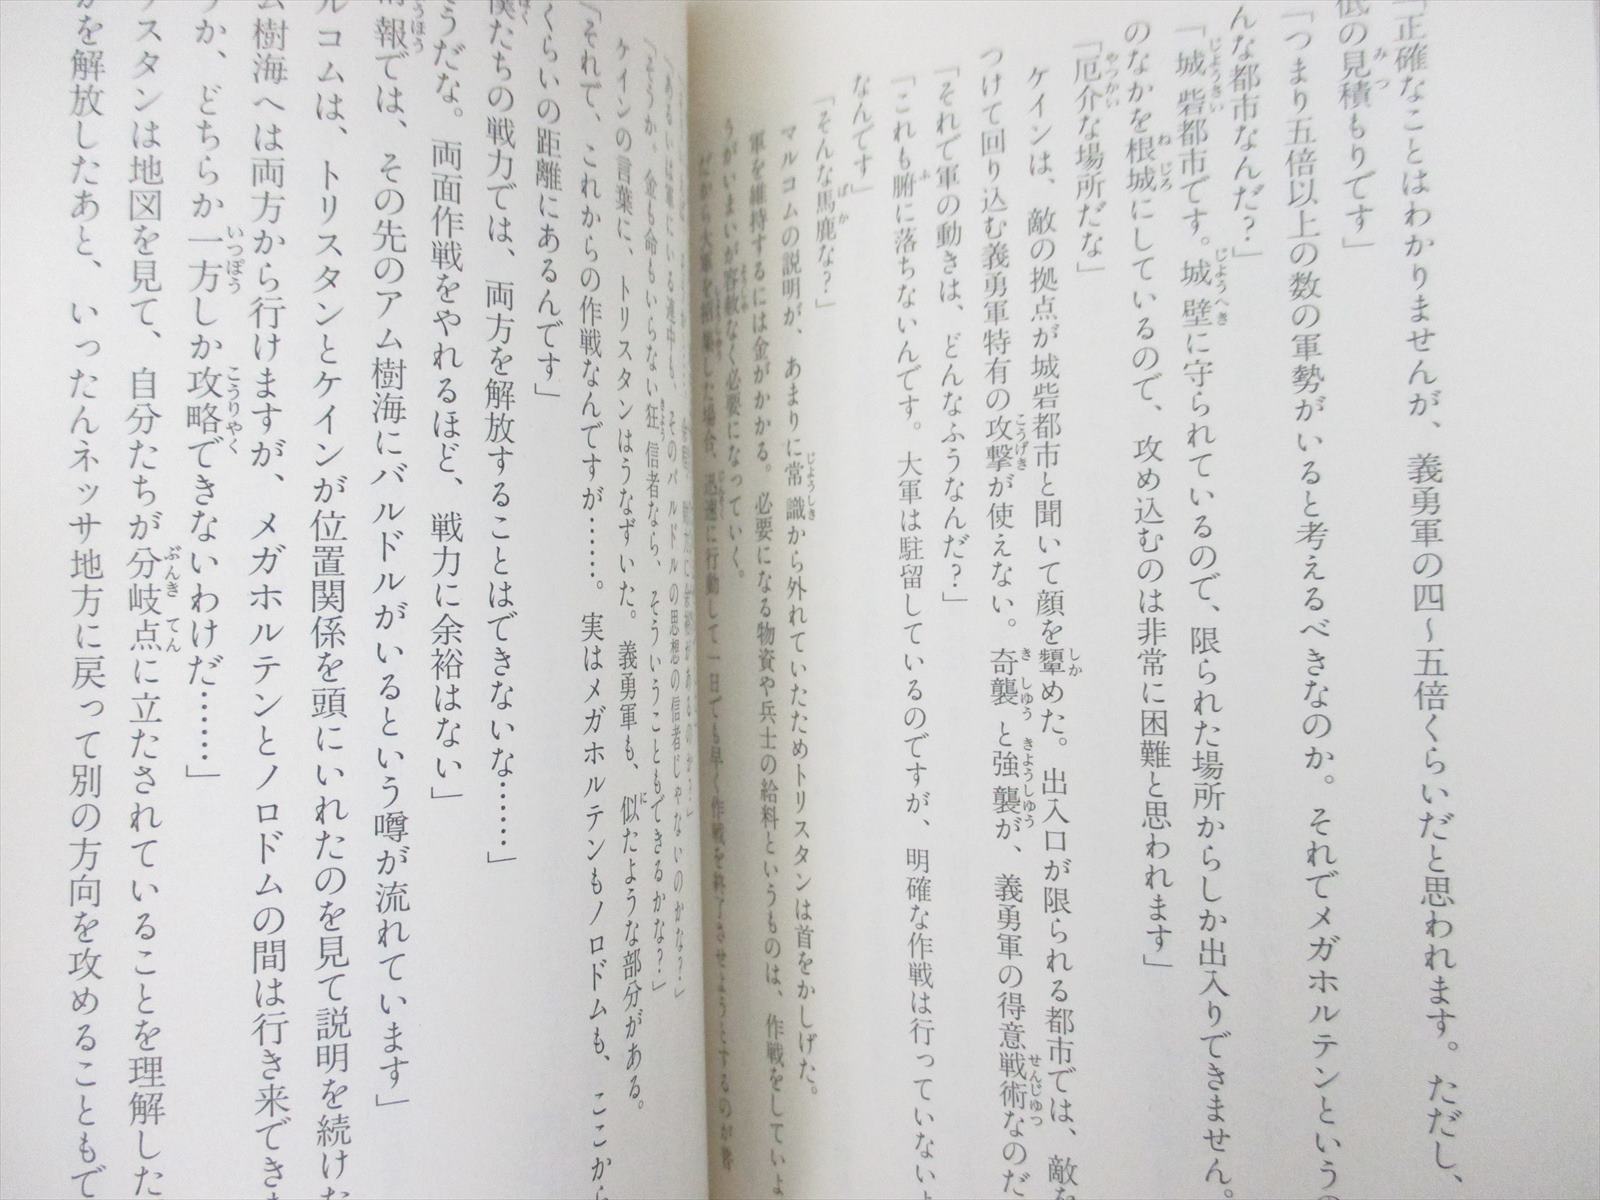 「正確なことはわかりませんが、義勇軍の四〜五倍くらいだと思われます。ただし、
低の見積もりです」
「つまり五倍以上の数の軍勢がいると考えるべきなのか。それでメガホルテンというの
んな都市なんだ？」
「城砦都市です。城壁に守られているので、限られた場所からしか出入りできません。
のなかを根城にしているので、攻め込むのは非常に困難と思われます」
「厄介な場所だな」
ケインは、敵の拠点が城砦都市と聞いて顔を顰めた。出入口が限られる都市では、敵を
つけて回り込む義勇軍特有の攻撃が使えない。奇襲と強襲が、義勇軍の得意戦術なのだ
「それで軍の動きは、どんなふうなんだ？」
「これも腑に落ちないんです。大軍は駐留しているのですが、明確な作戦は行っていないよ
なんです」
「そんな馬鹿な？」
マルコムの説明が、あまりに常識から外れていたためトリスタンは首をかしげた。
軍を維持するには金がかかる。必要になる物資や兵士の給料というものは、作戦をしていよ
うがいまいが容赦なく必要になっていく。
だから大軍を招集した場合、迅速に行動して一日でも早く作戦を終了させようとするのが
「あるいは軍にいる連中も、そのバルドルの思想の信者じゃないのかな？」
「そうか。金も命もいらない狂信者なら、そういうこともできるかな？」
ケインの言葉に、トリスタンはうなずいた。義勇軍も、似たような部分がある。
「それで、これからの作戦なんですが……。実はメガホルテンもノロドムも、ここから
くらいの距離にあるんです」
僕たちの戦力では、両方を解放することはできないな……」
うだな。両面作戦をやれるほど、戦力に余裕はない」
情報では、その先のアム樹海にバルドルがいるという噂が流れています」
ルコムは、トリスタンとケインが位置関係を頭にいれたのを見て説明を続けた
ム樹海へは両方から行けますが、メガホルテンとノロドムの間は行き来できま
うか、どちらか一方しか攻略できないわけだ……」
リスタンは地図を見て、自分たちが分岐点に立たされていることを理解した
かを解放したあと、いったんネッサ地方に戻って別の方向を攻めることもで